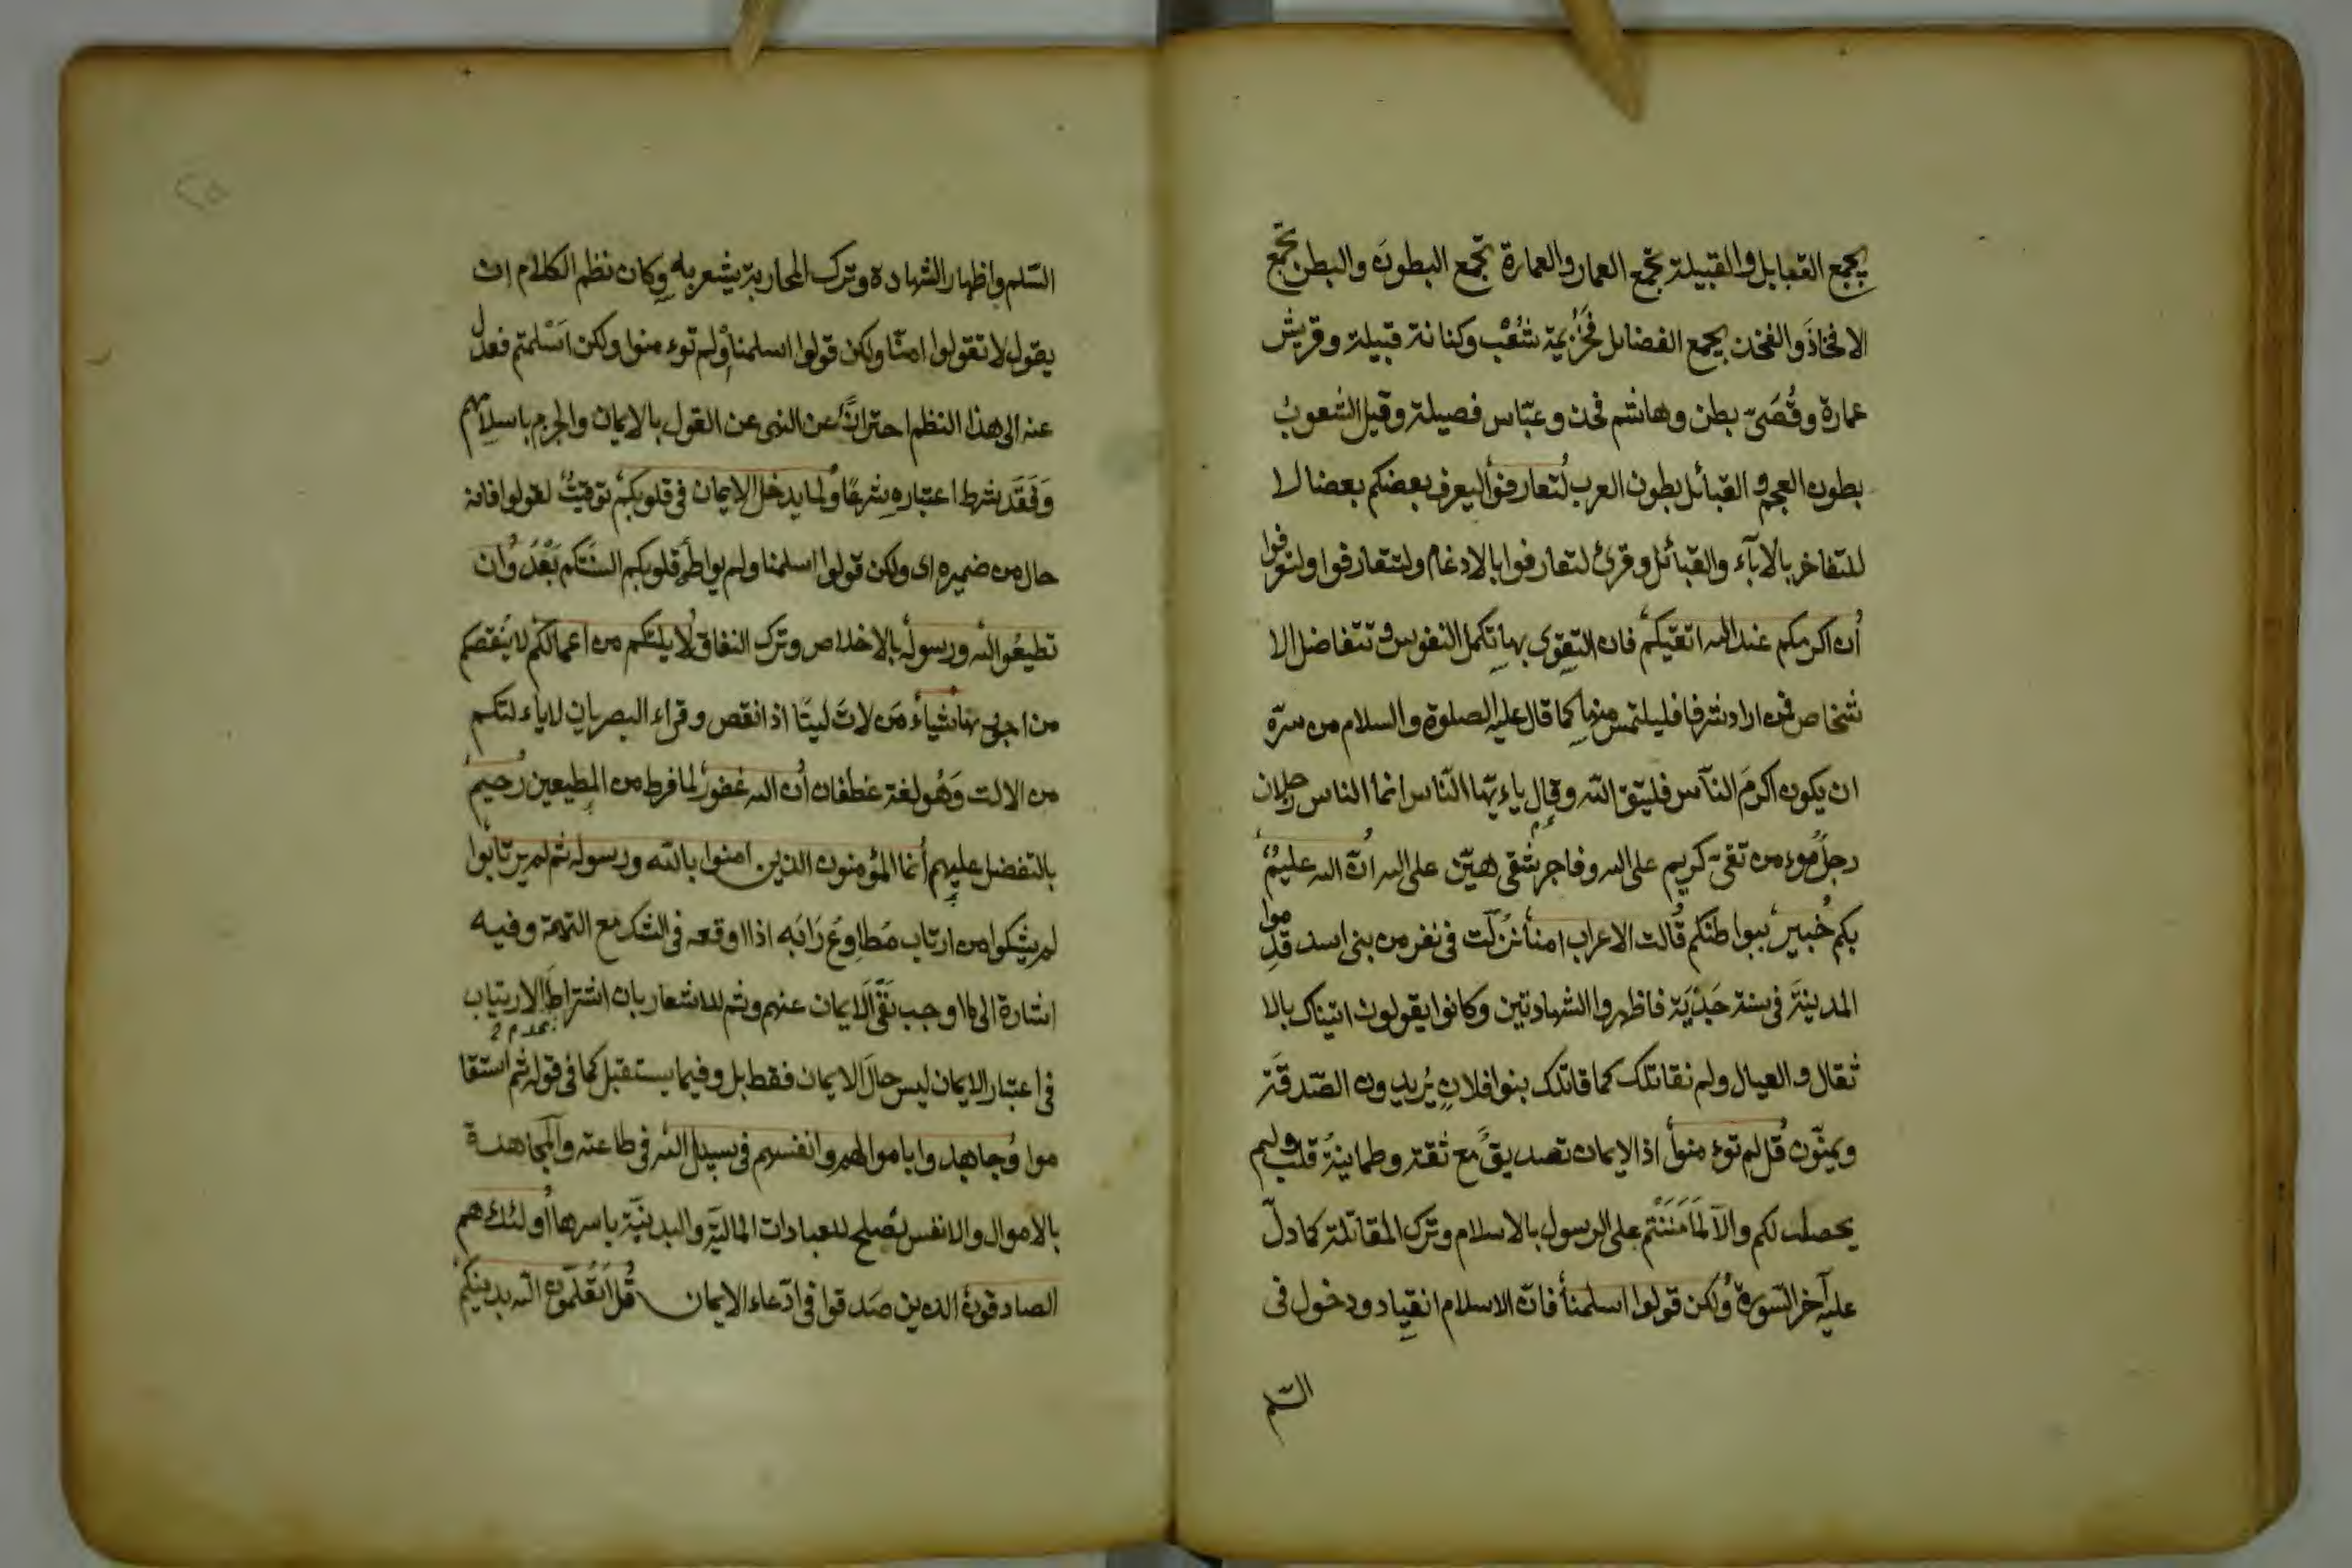 يجمع القبايل والقبيلة تجمع العمار والعمارة تجمع البطون والبطن تجمع
الافخاذ والفخذ يجمع الفضايل فخزيمة شعب وكنانة قبيلة وقريش
عمارة وقُصَىّ بطن وهاشم فخذ وعبّاس فصيلة وقيل الشعوبُ
بطون العجم والقبائل بطون العرب لتعارفوا ليعرف بعضكم بعضا لا
للتفاخر بالاۤباۤء والقبائل وقرئ لتعارفوا بالادغام ولتتعارفوا ولتعرفوا
أن اكرمكم عند الله اتقيكم فان التقوى بها تكمل النفوس وتتفاضل الا
شخاص فمن اراد شرفا فليلتمس منها كما قال عليه الصلوة والسلام من سرّه
ان يكون اكرمَ الناس فليتق الله وقال ياءيّها النّاس انما الناس رجلان
رجلٌ موءمن تقىّ كريم على الله وفاجر شقى هيّن على الله انّ الله عليمٌ
بكم خبيرٌ ببواطنكم قالت الاعراب امنا نزلت فى نفر من بنى اسد قدموا
المدينةَ فى سنة جَدْبَة فاظهروا الشهادتين وكانوا يقولون اتيناك بالا
ثقال والعيال ولم نقاتلك كما قاتلك بنوا فلانٍ يُريدون الصّدقة
ويمنّون قل لم توءمنوا اذ الايمان تصديقٌ مع ثقة وطمانينة قلب ولم
يحصل لكم والاّ لمَا مَنَنْتم على الرسول بالاسلام وترك المقاتلة كما دلّ
عليه آخر السّورة ولكن قولوا اسلمنا فانّ الاسلام انقياد ودخول فى
السّلم
السّلم واظهار الشهادة وترك المحاربة يشعر به وكان نظم الكلام ان
يقول لا تقولوا امنّا ولكن قولوا اسلمنا او لم توءمنوا ولكن اَسْلمتم فعدل
عنه الى هذا النظم احترازًا عن النهى عن القول بالايمان والجزم باسلامهم
وَفَقَد شرط اعتباره شرعًا ولما يدخل الايمان فى قلوبكم توقيتٌ لقولوا فانه
حال من ضميره اى ولكن قولوا اسلمنا ولم يواطئ قلوبكم السنَتكم بَعْدُ وان
تطيعُوا الله ورسوله بالاخلاص وترك النفاق لا يلتكم من اعمالكم لا ينُقصكم
من اجورها شياء من لاتَ ليتًا اذا نقص وقراء البصريان لاياءلتكم
من الالت وَهُو لغة غطفان أن الله غفورٌ لما فرط من المطيعين رحيمٌ
بالتفضل عليهم انما المؤمنون الذين امنوا بالله ورسوله ثم لم يرتابوا
لم يشكوا من ارتاب مُطاوِعُ رَابَه اذا اوقعه فى الشك مع التهمة وفيه
اشارة الى ما اوجب نَفْىَ الايمان عنهم وثم للاشعار بان اشتراط الارتياب
عدم
فى اعتبار الايمان ليس حالَ الايمان فقط بل وفيما يستقبل كما فى قوله ثم استقا
موا وجاهدوا باموالهم وانفسهم فى سبيل الله فى طاعته والمجاهدة
بالاموال والانفس تصلح للعبادات الماليّة والبدنيّة باسرها أولئك هم
الصادقون الذين صَدقوا فى ادّعاء الايمان قل اَتُعَلّمون الله بدينكم